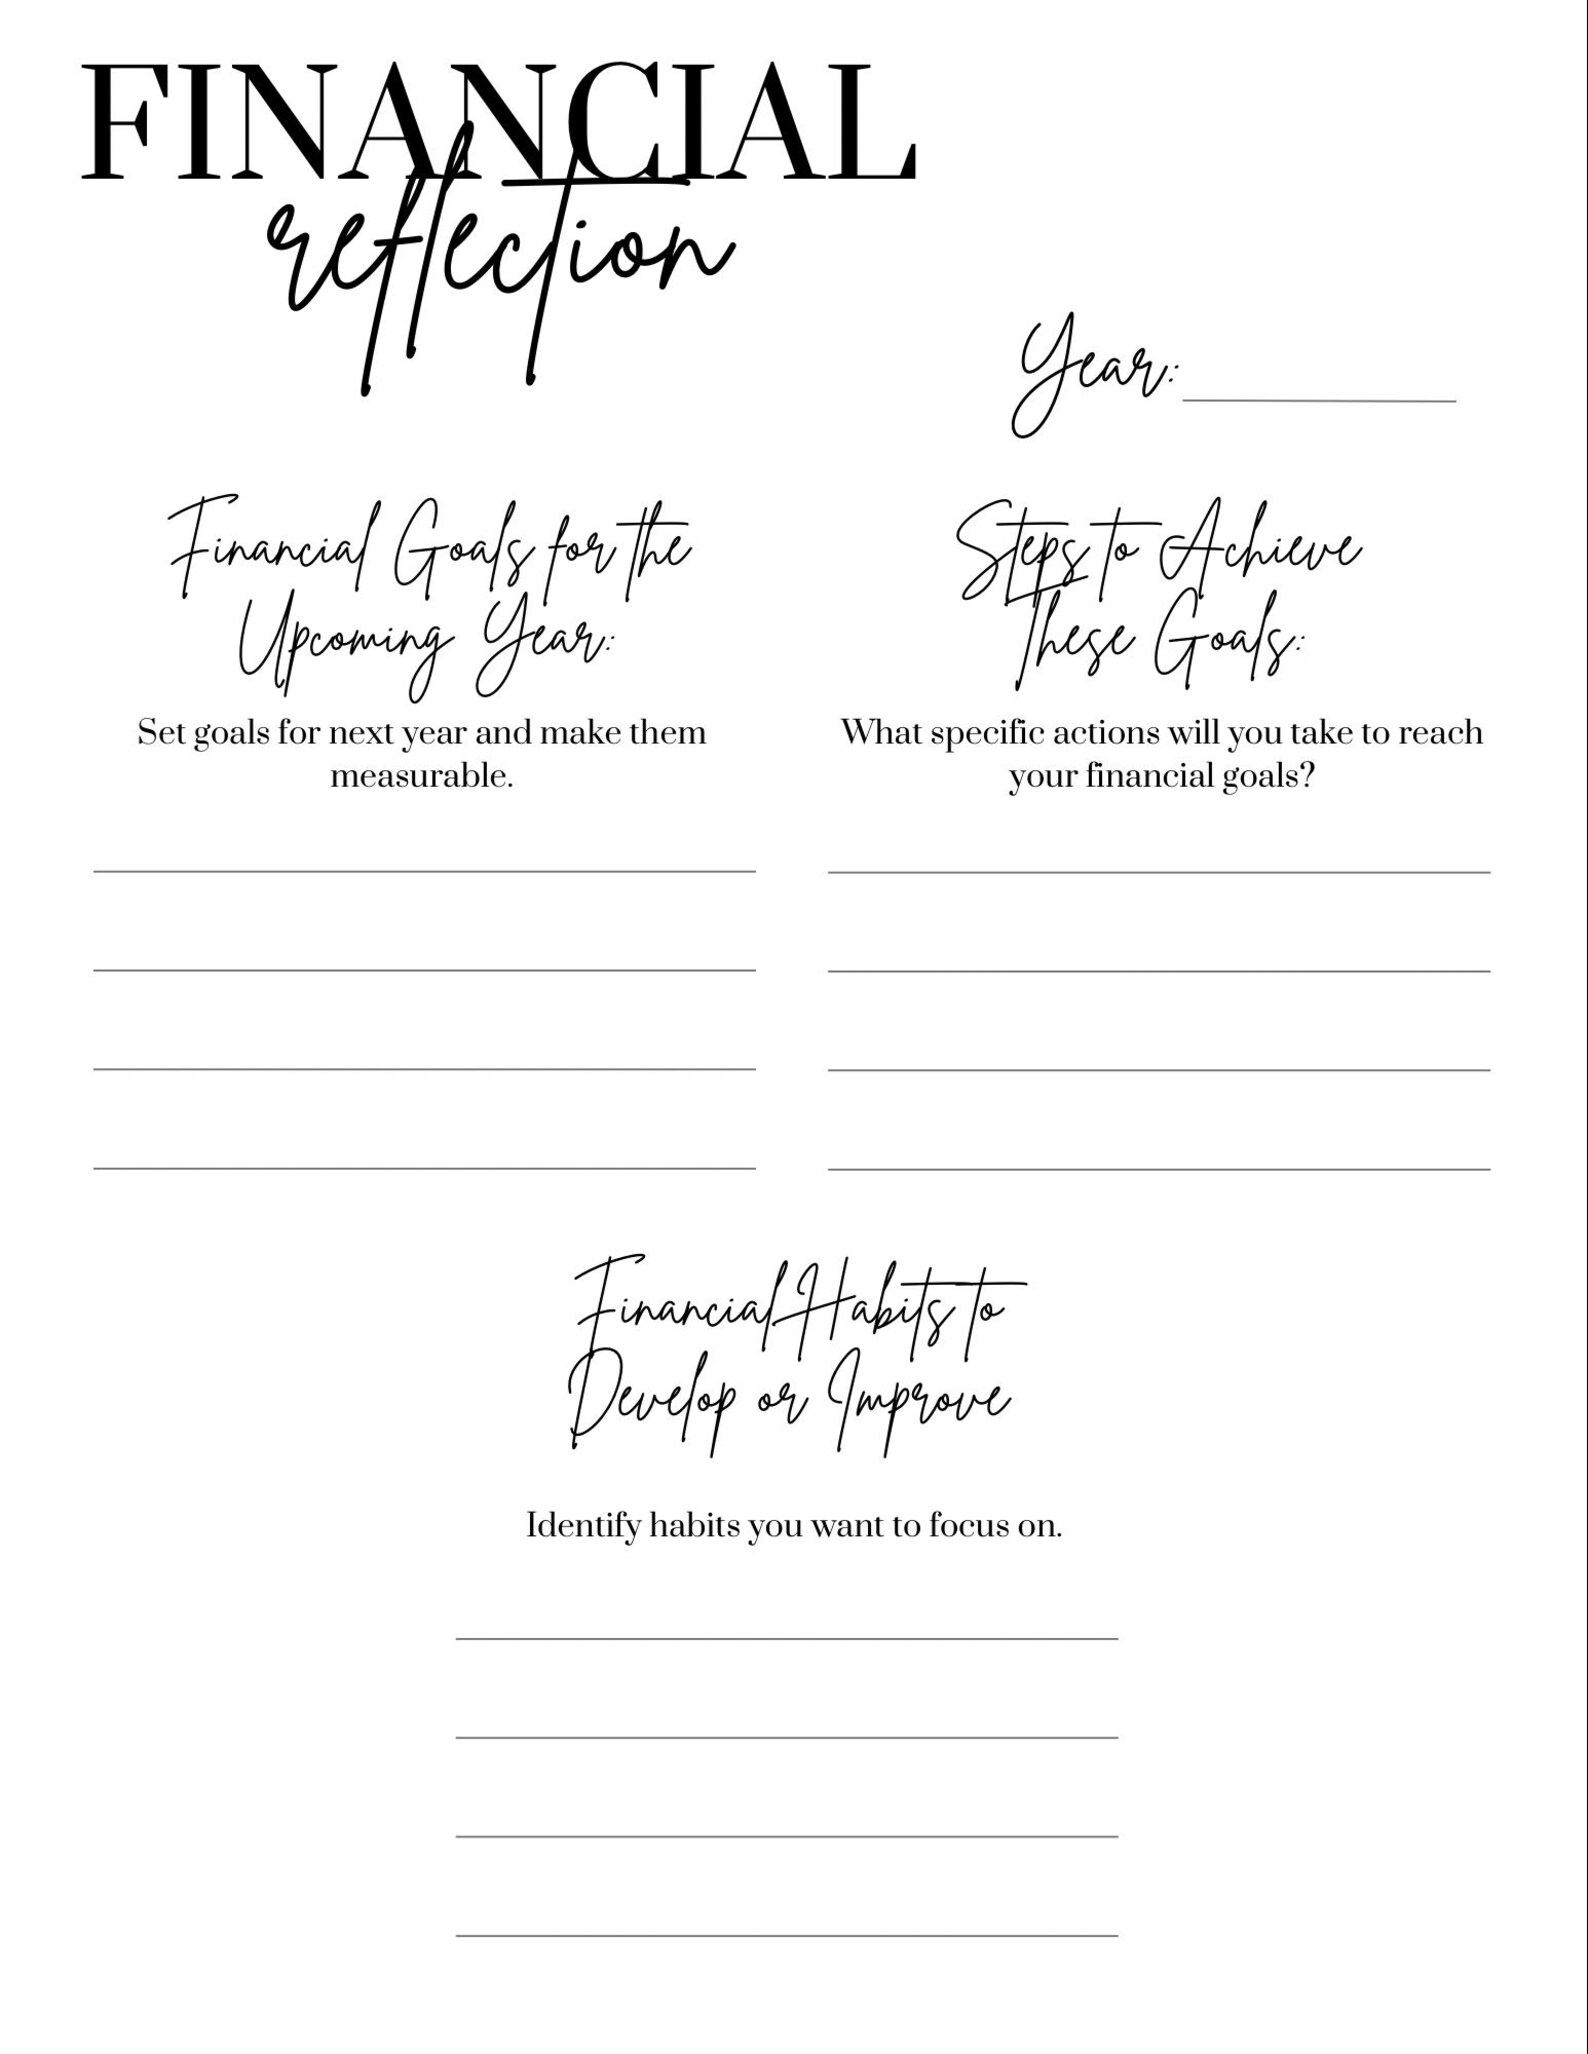 FINANCIAL
reflection
Year:
Financial Goals for the
Upcoming Year:
Set goals for next year and make them
measurable.
Steps to Achieve
These Goals:
What specific actions will you take to reach
your financial goals?
Financial Habits to
Develop or Improve
Identify habits you want to focus on.